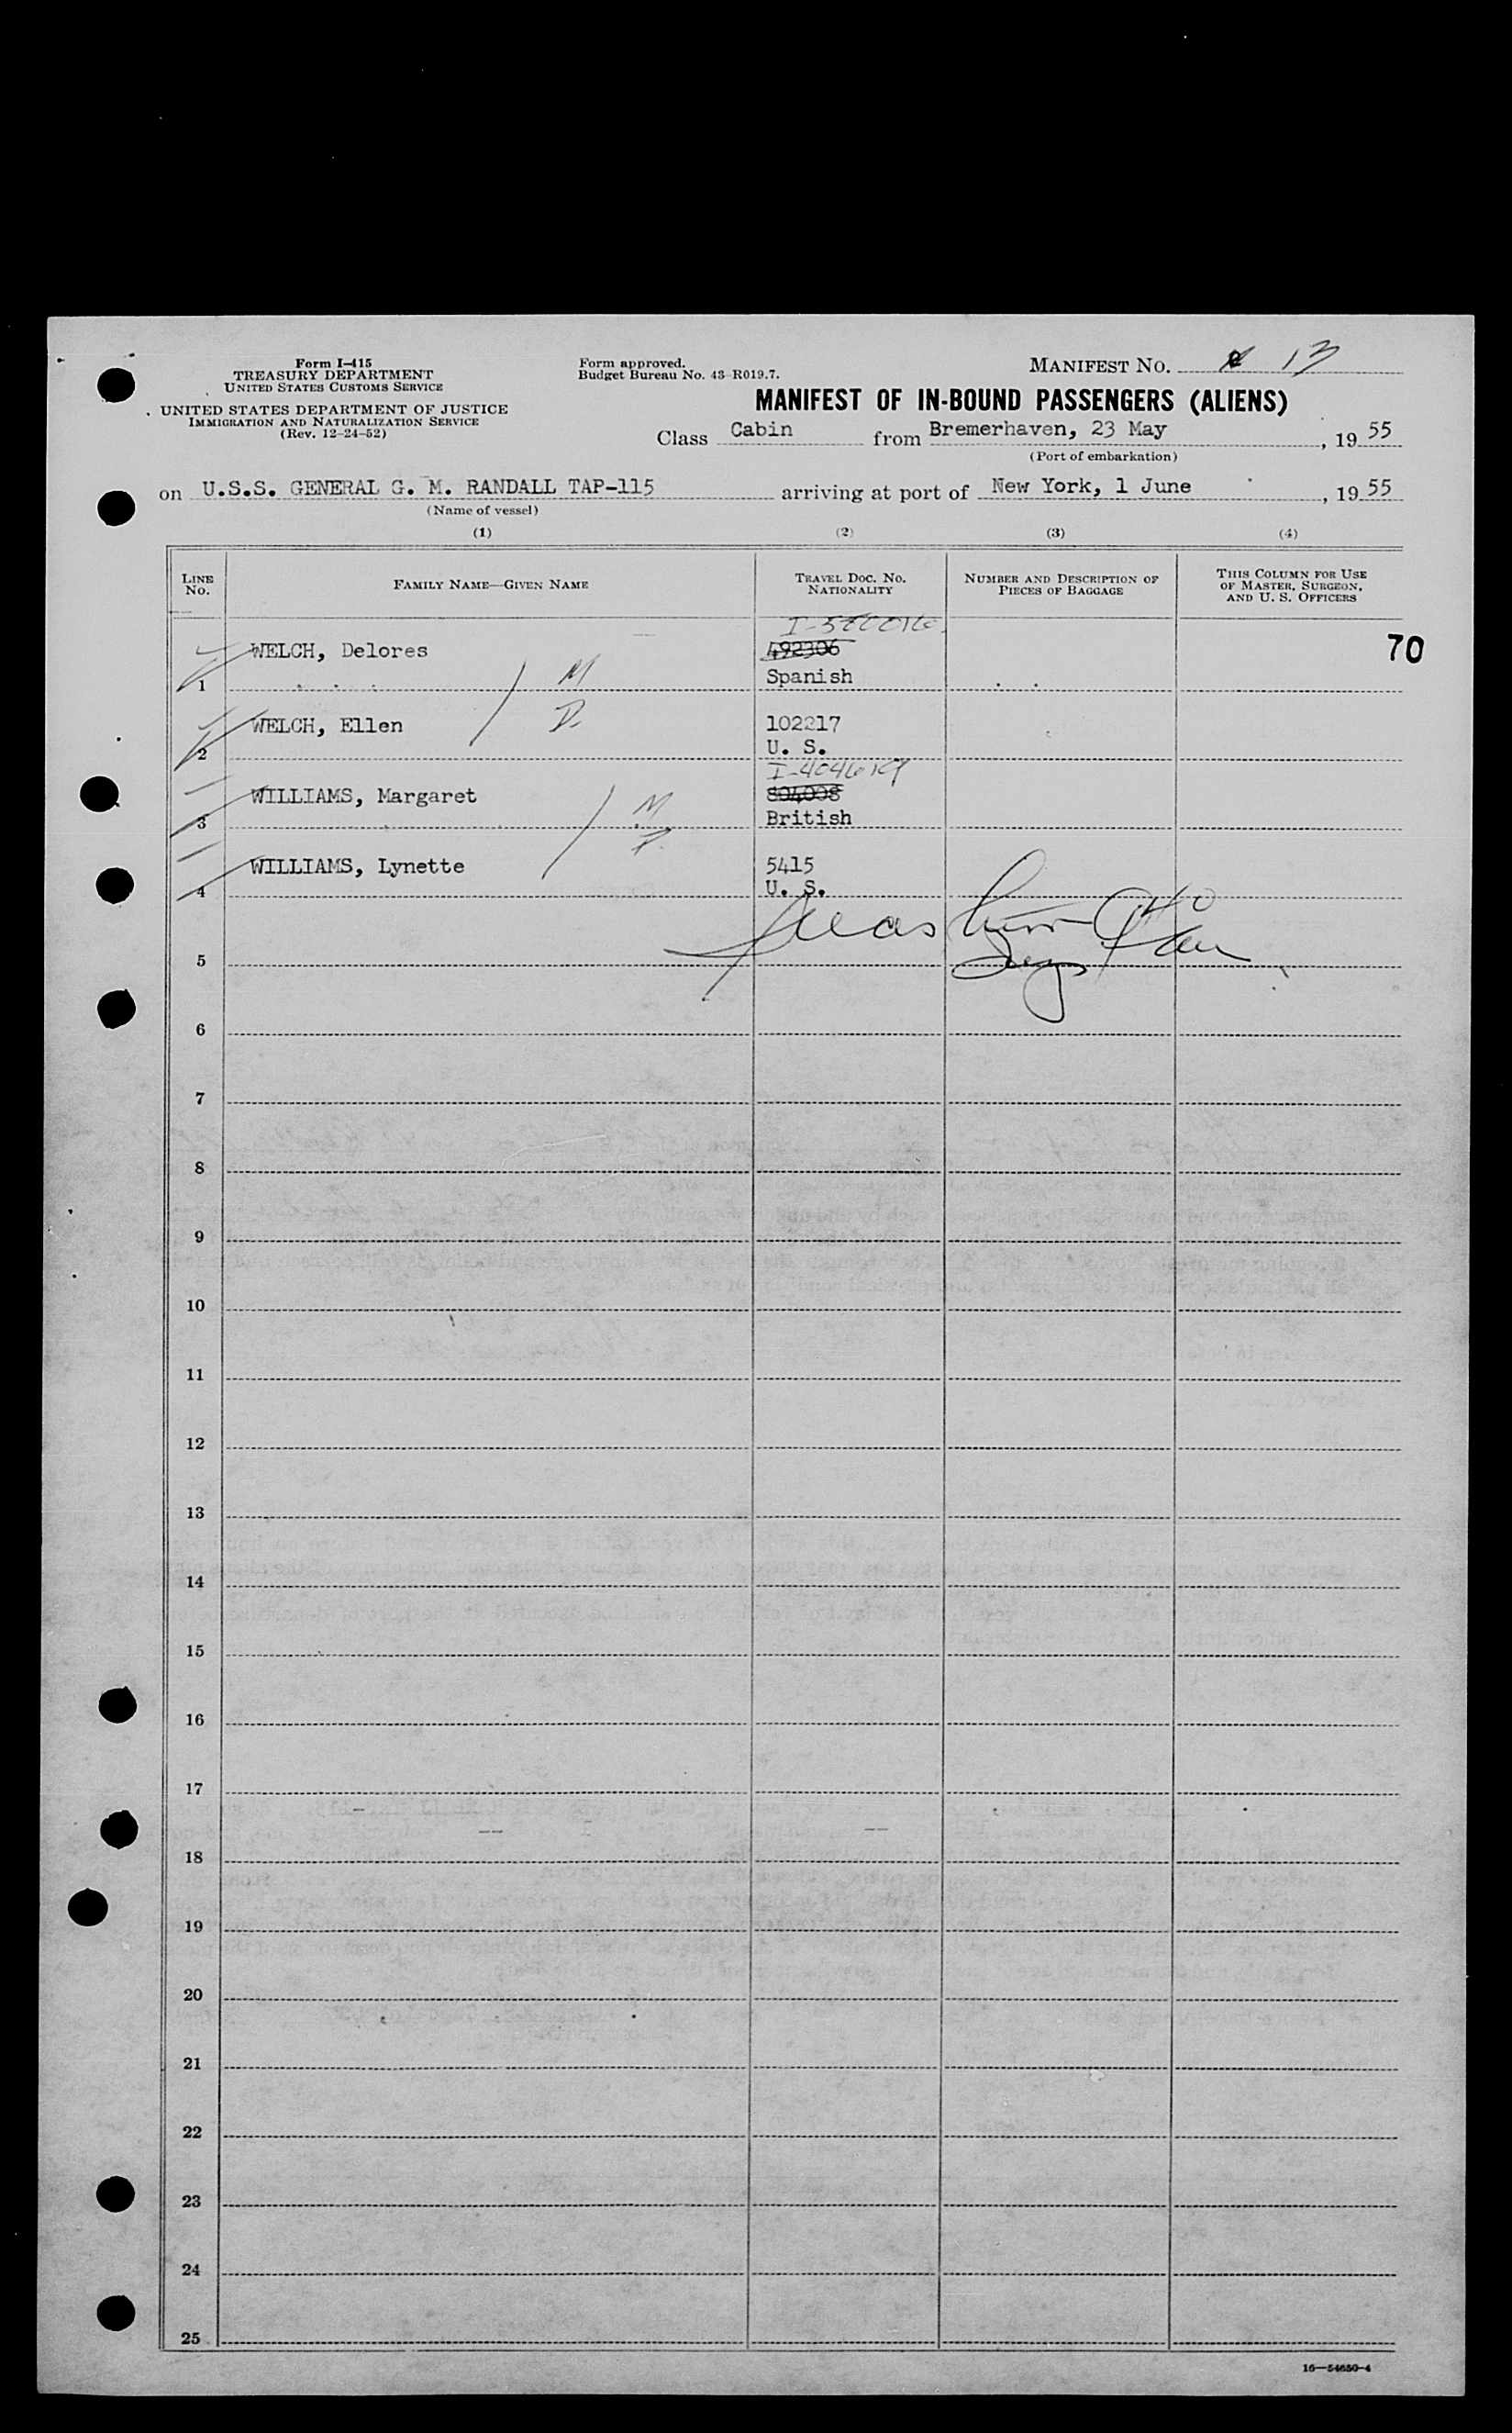 Form I-415
TREASURY DEPARTMENT
UNITED STATES CUSTOMS SERVICE
UNITED STATES DEPARTMENT OF JUSTICE
IMMIGRATION AND NATURALIZATION SERVICE
(Rev. 12-24-52)
Form approved.
Budget Bureau No. 43-R019.7.
MANIFEST NO. 13
MANIFEST OF IN-BOUND PASSENGERS (ALIENS)
Class Cabin from Bremerhaven, 23 May, 19 55
(Port of embarkation)
on U.S.S. GENERAL G. M. RANDALL TAP-115 arriving at port of New York, 1 June, 19 55
(Name of vessel)
(1) (2) (3) (4)
LINE NO. FAMILY NAME—GIVEN NAME TRAVEL DOC. NO. NATIONALITY NUMBER AND DESCRIPTION OF PIECES OF BAGGAGE THIS COLUMN FOR USE OF MASTER, SURGEON, AND U. S. OFFICERS
70
WELCH, Delores 492306
1 M Spanish
WELCH, Ellen D 102217
2 U. S.
WILLIAMS, Margaret 804008
3 M British
WILLIAMS, Lynette 5415
4 U. S.
5
6
7
8
9
10
11
12
13
14
15
16
17
18
19
20
21
22
23
24
25
16—54650-4